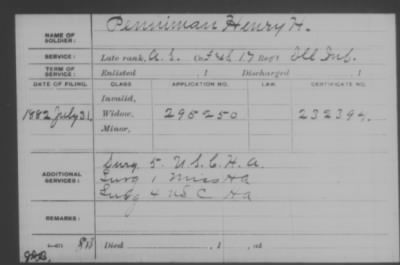 NAME OF SOLDIER: Penniman Henry H.
SERVICE: Late rank, A. S. Co. F & S, 17 Reg't Ill Inf.
TERM OF SERVICE: Enlisted , 1 Discharged , 1
DATE OF FILING. CLASS APPLICATION NO. LAW. CERTIFICATE NO.
Invalid,
1882 July 31. Widow, 295250 232394.
Minor,
ADDITIONAL SERVICES: Surg 5. U.S.C.H.A.
Surg 1 Miss HA
Surg 4 US C HA
REMARKS:
Died , 1 , at